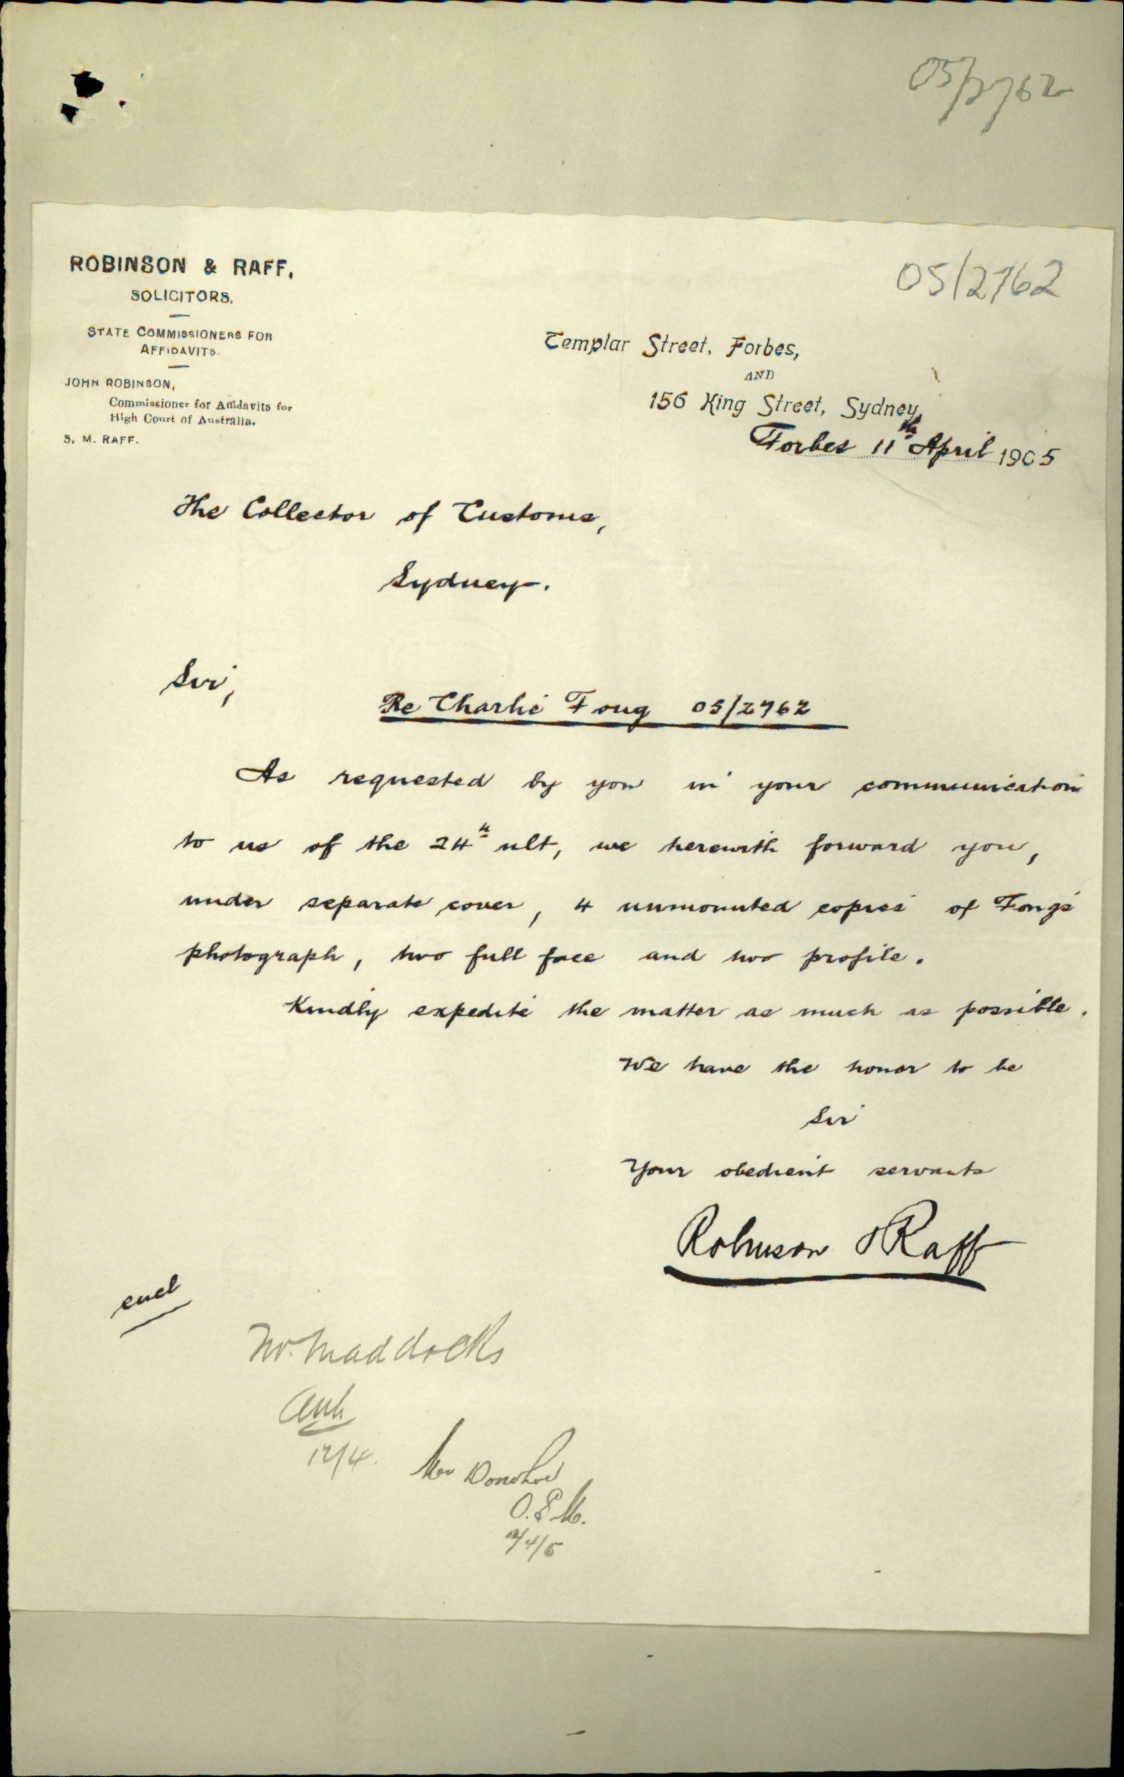 05/2762
05/2762
ROBINSON & RAFF,
SOLICITORS.
STATE COMMISSIONERS FOR
AFFIDAVITS.
JOHN ROBINSON,
Commissioner for Affidavits for
High Court of Australia.
S. M. RAFF.
Templar Street, Forbes,
AND
156 King Street, Sydney,
Forbes 11th April 1905
The Collector of Customs,
Sydney.
Sir,
Re Charlie Fong 05/2762
As requested by you in your communication
to us of the 24th ult, we herewith forward you,
under separate cover, 4 unmounted copies of Fong's
photograph, two full face and two profile.
Kindly expedite the matter as much as possible.
We have the honor to be
Sir
Your obedient servants
Robinson & Raff
encl
Mr. Maddocks
12/4.
Mr Donohoe
/4/5